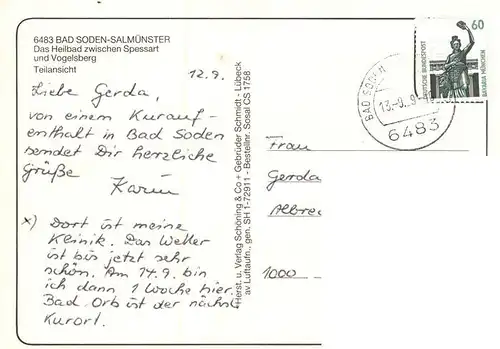 6483 BAD SODEN-SALMÜNSTER
Das Heilbad zwischen Spessart
und Vogelsberg
Teilansicht
12.9.
Liebe Gerda,
von einem Kurauf-
enthalt in Bad Soden
sendet Dir herzliche
Grüße
Karin
x) Dort ist meine
Klinik. Das Wetter
ist bis jetzt sehr
schön. Am 14.9. bin
ich dann 1 Woche hier.
Bad Orb ist der nächste
Kurort.
Herst. u. Verlag Schöning & Co + Gebrüder Schmidt · Lübeck
av Luftaufn., gen. SH 1-72911 - Bestellnr. Sosal CS 1758
60
DEUTSCHE BUNDESPOST
BAVARIA MÜNCHEN
BAD SODEN
6483
Frau
Gerda
Albrec
1000